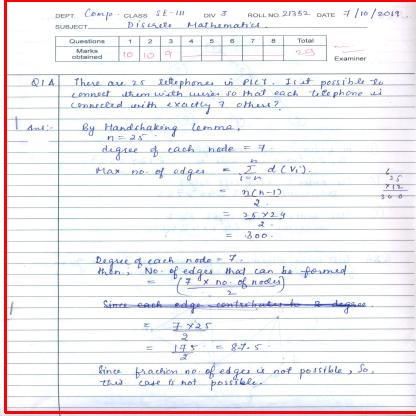 DEPT. Comp. CLASS SE-III DIV 3 ROLL NO. 21352 DATE 7/10/2019
SUBJECT Discrete Mathematics
Questions 1 2 3 4 5 6 7 8 Total
Marks obtained 10 10 9 29
Examiner
Q1A There are 25 telephones in PICT. Is it possible to
connect them with wires so that each telephone is
connected with exactly 7 others?
1 Ans:- By Handshaking lemma,
n = 25.
degree of each node = 7.
Max no. of edges = n Σ i=n d(Vi).
= n(n-1)
2.
= 25 × 24
2.
= 300.
25
×12
300
Degree of each node = 7.
then, No. of edges that can be formed
= (7 × no. of nodes)
2
1 Since each edge contributes to 2 degree
= 7 × 25
2
= 175 = 87.5.
2
Since fraction no. of edges is not possible, So,
this case is not possible.